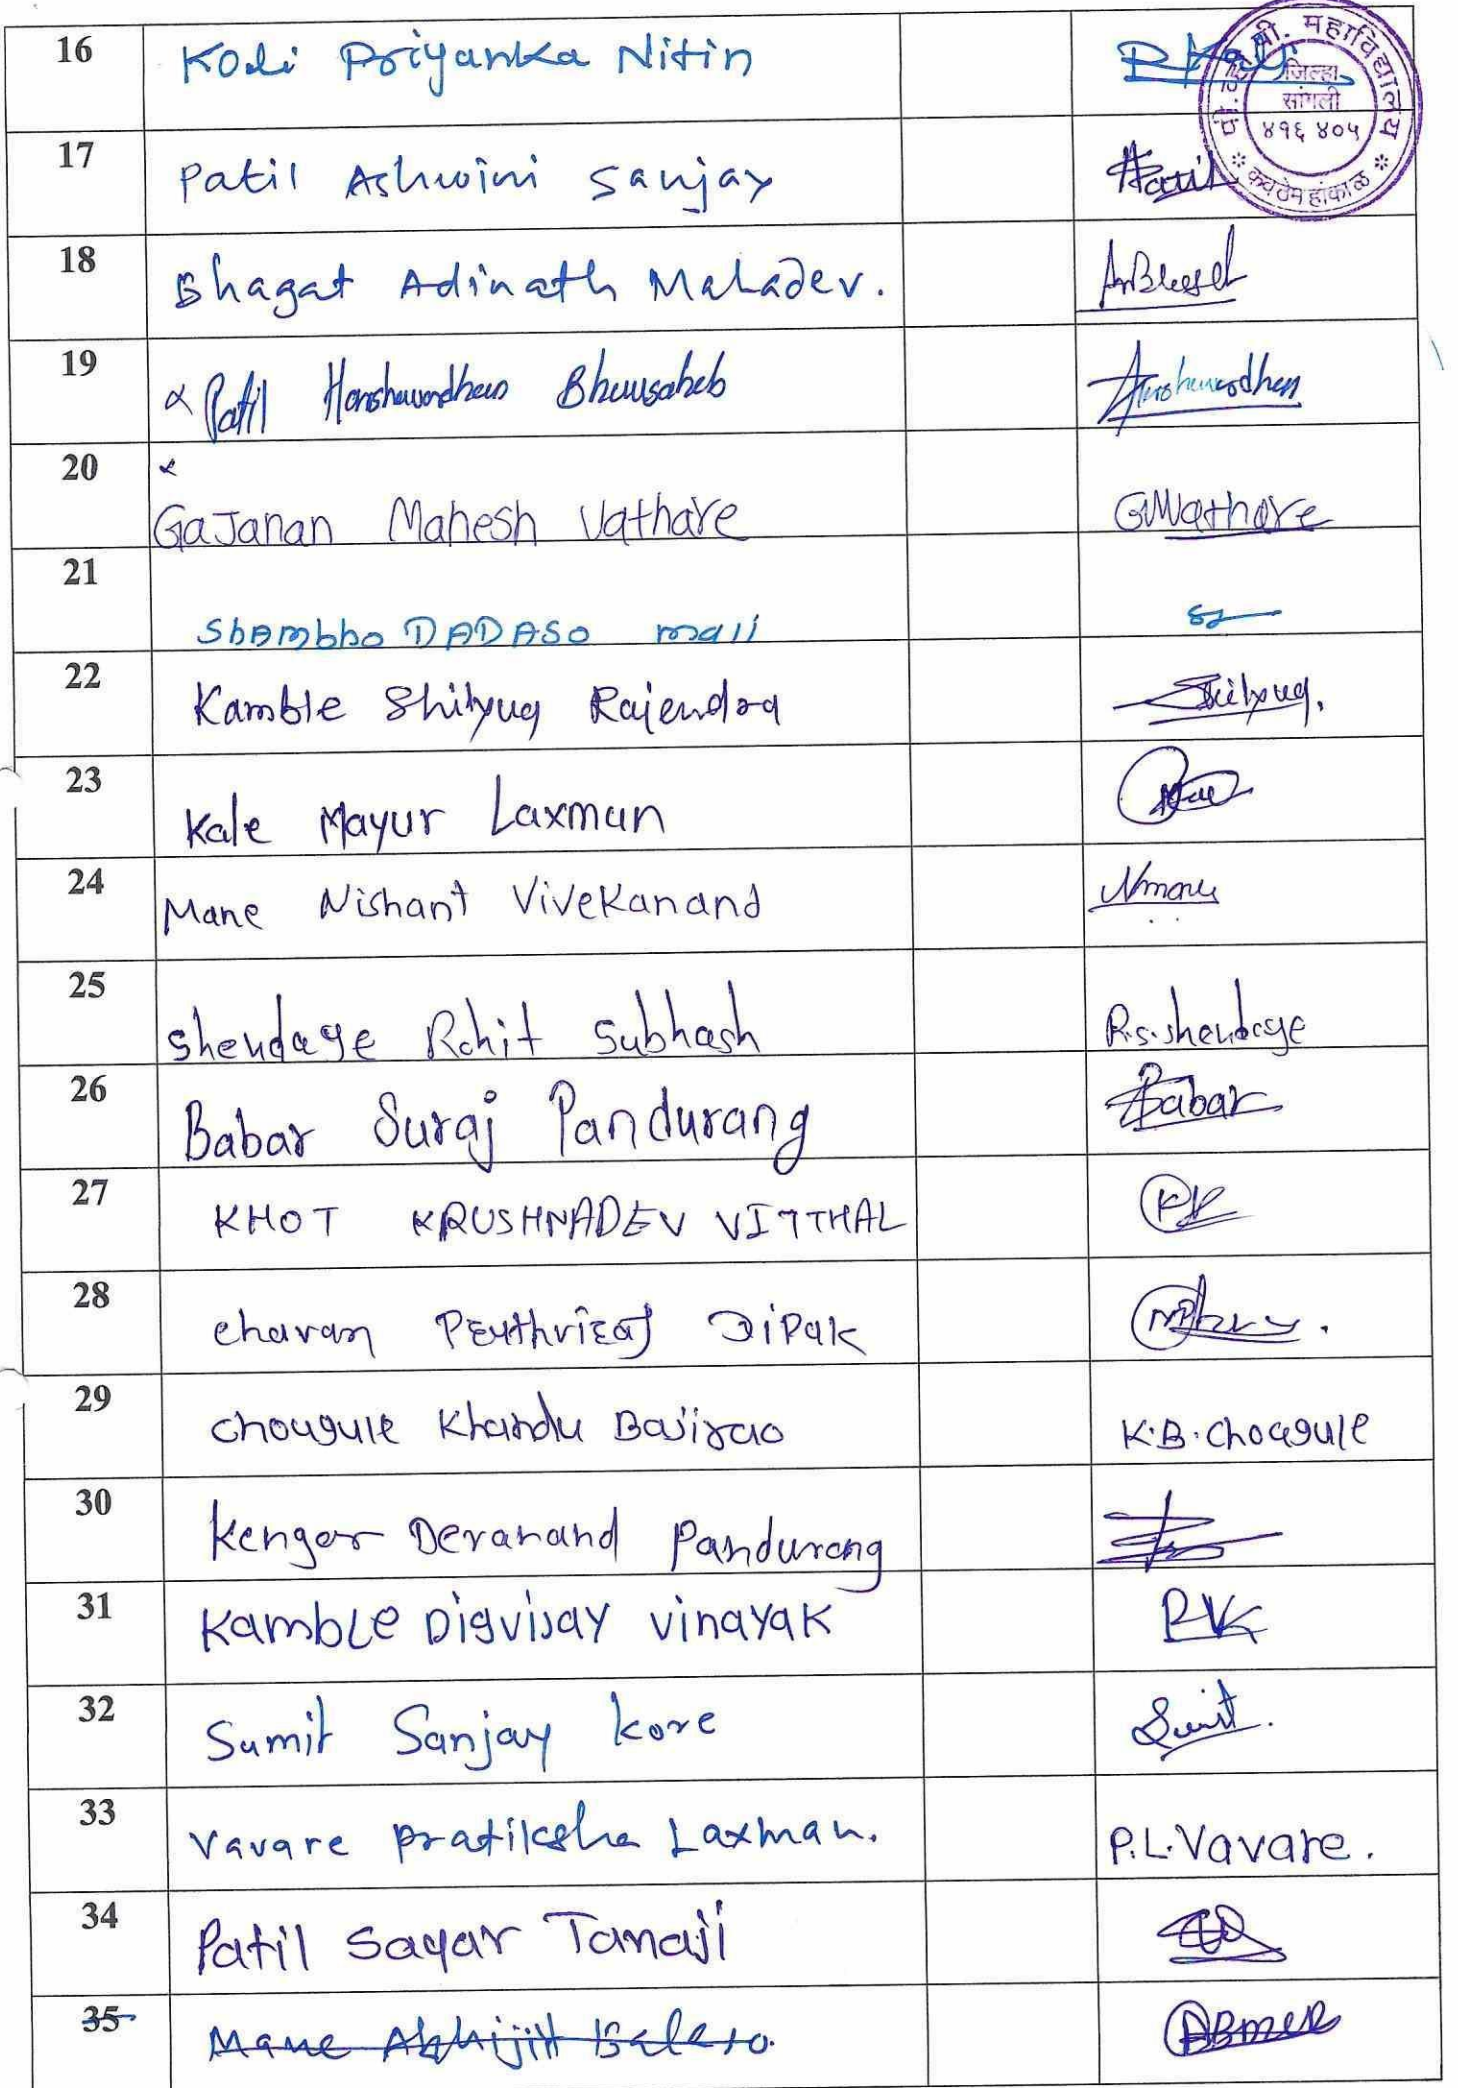 16 Koli Priyanka Nitin
पी. महाविद्यालय
जिल्हा
सांगली
४१६ ४०५
* कवठेमहांकाळ *
17 Patil Ashwini Sanjay
18 Bhagat Adinath Mahadev. AnBhagat
19 Patil Harshawardhan Bhausaheb Harshawardhan
20 GaJanan Mahesh Vathare GMVathare
21 Shambho DADASO mali
22 Kamble Shilyug Rajendra Shilyug.
23 Kale Mayur Laxman
24 Mane Nishant Vivekanand Nmane
25 Shendage Rohit Subhash R.S.Shendage
26 Babar Suraj Pandurang Babar
27 KHOT KRUSHNADEV VITTHAL KK
28 Chavan Dipak
29 Chougule Khandu Bajirao K.B.Chougule
30 Kengar Devanand Pandurang
31 Kamble Digvijay Vinayak
32 Sumit Sanjay Kore Sumit.
33 Vavare Pratiksha Laxman. P.L.Vavare.
34 Patil Sagar Tanaji
35 Mane Abhijit Balaso.